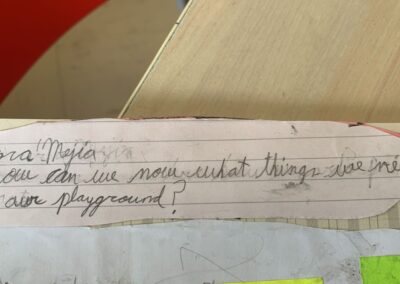 ora Mejia
ow can we now what things
our playground?